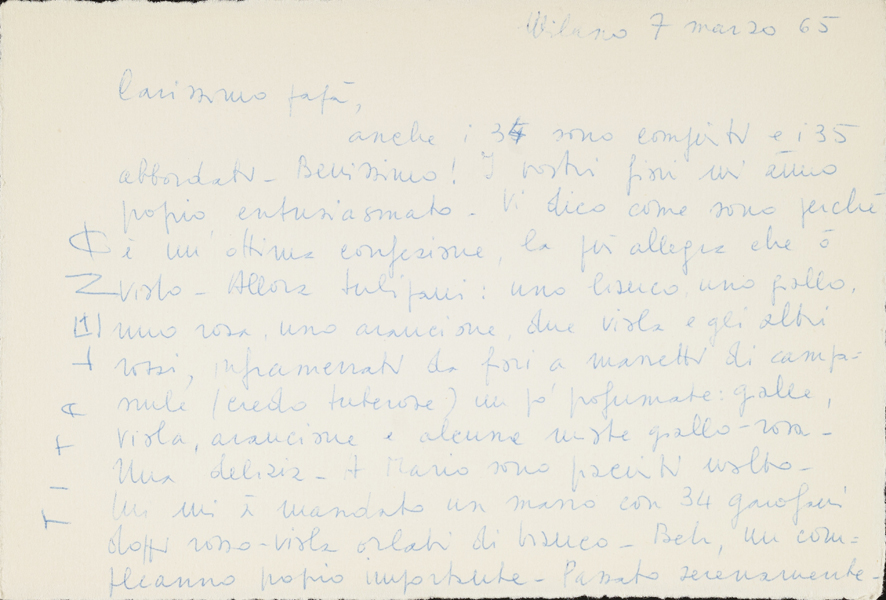 Milano 7 marzo 65
Carissimo papà,
anche i 34 sono compiuti e i 35
abbordati - Benissimo! I vostri fiori mi ànno
propio entusiasmato - Vi dico come sono perché
è un'ottima confezione, la più allegra che ò
visto - Allora tulipani: uno bianco, uno giallo,
uno rosa, uno arancione, due viola e gli altri
rossi, inframezzati da fiori a mazzetti di campa=
nule (credo tuberose) un po' profumate: gialle,
viola, arancione e alcune miste giallo-rosa -
Una delizia - A Mario sono piaciuti molto -
lui mi à mandato un mazzo con 34 garofani
doppi rosso-viola orlati di bianco - Beh, un com=
pleanno propio importante - Passato serenamente -